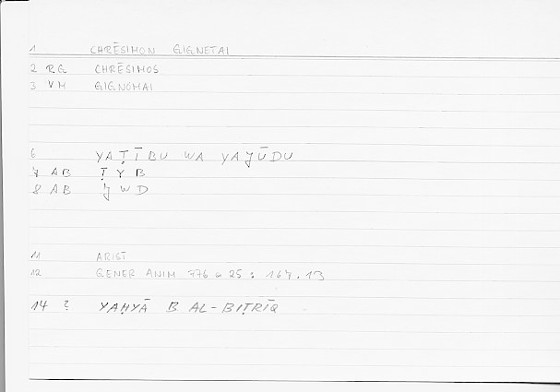 1 CHRĒSIMON GIGNETAI
2 RG CHRĒSIMOS
3 VM GIGNOMAI
6 YAṬĪBU WA YAǦŪDU
7 AB ṬYB
8 AB ǦWD
11 ARIST
12 GENER ANIM 776 a 25 : 164.13
14 2 YAḤYĀ B AL-BIṬRĪQ